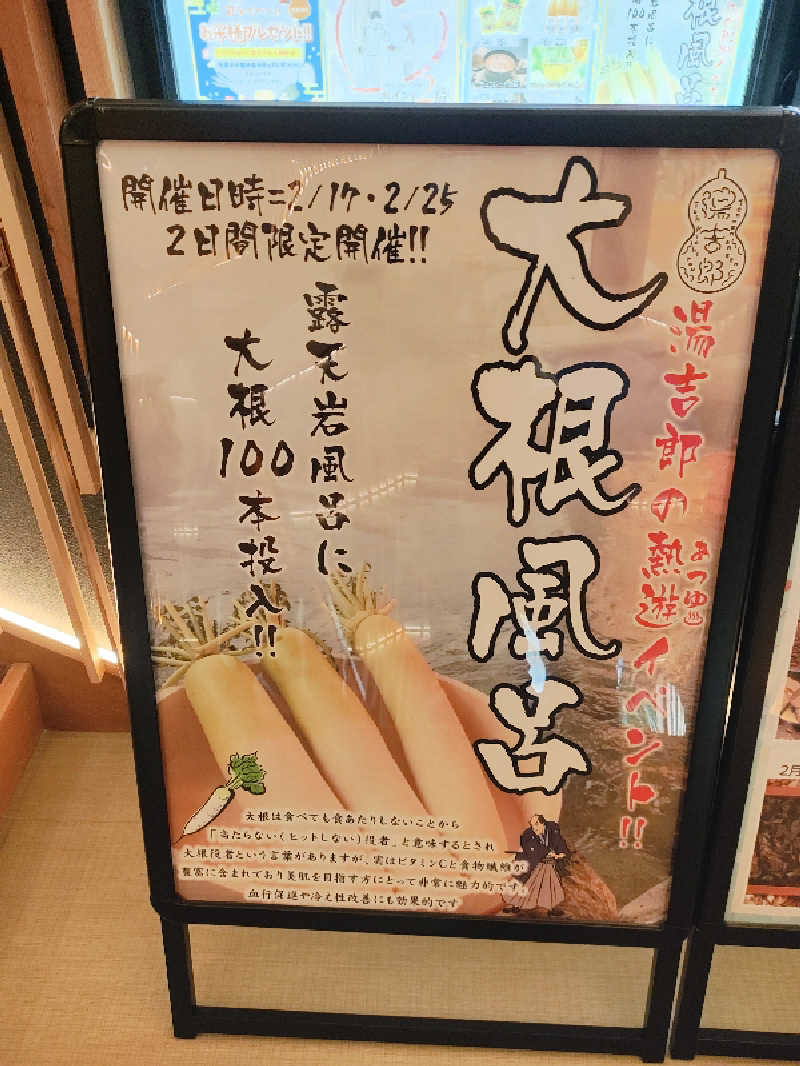 湯吉郎
湯吉郎の熱遊イベント!!
あつゆ
大根風呂
開催日時=2/17・2/25
2日間限定開催!!
露天岩風呂に
大根100本投入!!
大根は食べても食あたりしないことから
「当たらない(ヒットしない)役者」を意味するとされ
大根役者という言葉がありますが、実はビタミンCと食物繊維が
豊富に含まれており美肌を目指す方にとって非常に魅力的です。
血行促進や冷え性改善にも効果的です
根風呂
100本投入
2月